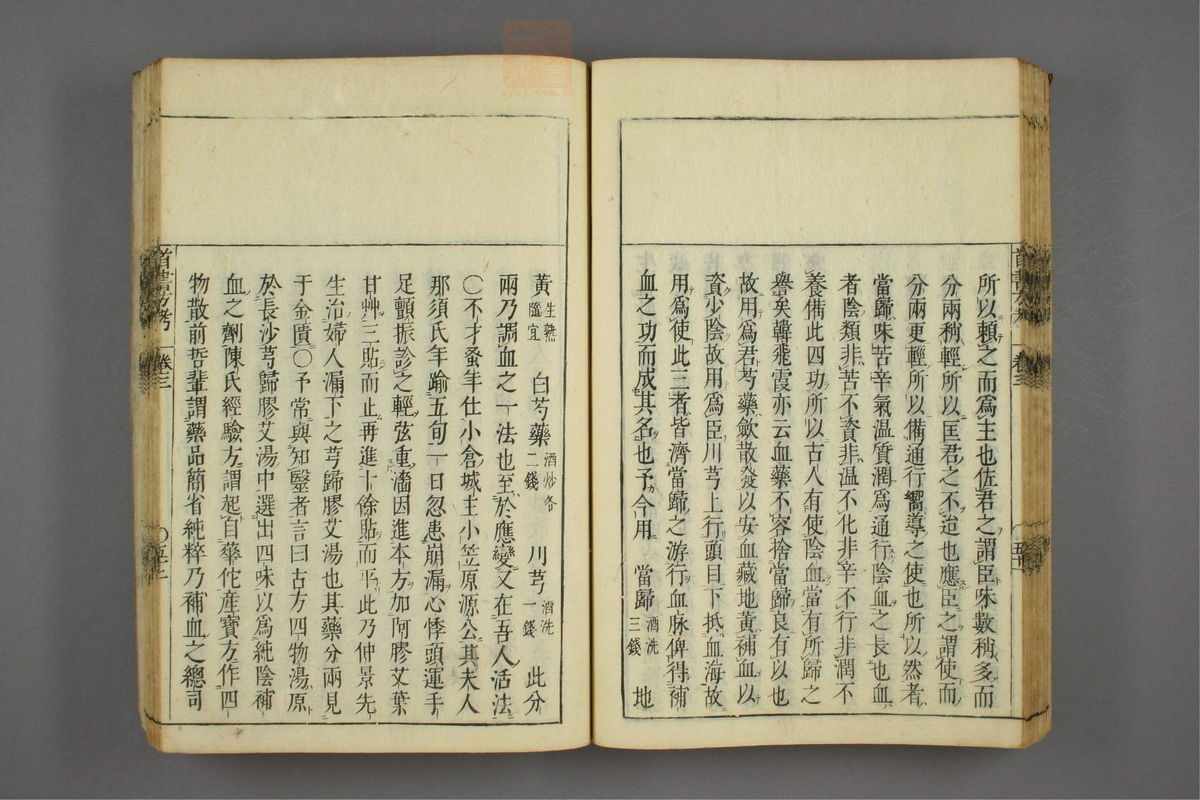 所以頼之而爲主也佐君之謂臣味數稍多而
分兩稍輕所以匡君之不迨也應臣之謂使而
分兩更輕所以備通行嚮導之使也所以然者
當歸味苦辛氣温質潤爲通行陰血之長也血
者陰類非苦不資非温不化非辛不行非潤不
養備此四功所以古人有使陰血當有所歸之
譽矣韓飛霞亦云血藥不容捨當歸良有以也
故用爲君芍藥歛散發以安血藏地黄補血以
資少陰故用爲臣川芎上行頭目下抵血海故
用爲使此三者皆濟當歸之游行血脉俾得補
血之功而成其名也予今用 當歸 酒洗三錢 地
黄 生熟隨宜 白芍藥 酒炒各二錢 川芎 酒洗一錢 此分
兩乃謂血之一法也至於應變又在吾人活法
〇不才蚤年仕小倉城主小笠原源公其夫人
那須氏年踰五旬一日忽患崩漏心悸頭運手
足顫振診之輕弦重濇因進本方加阿膠艾葉
甘艸三貼而止再進十餘貼而平此乃仲景先
生治婦人漏下之芎歸膠艾湯也其藥分兩見
于金匱〇予常與知醫者言曰古方四物湯原
於長沙芎歸膠艾湯中選出四味以爲純陰補
血之劑陳氏經驗方謂起自華佗産寶方作四
物散前哲輩謂藥品簡省純粹乃補血之總司
卷三
卷三